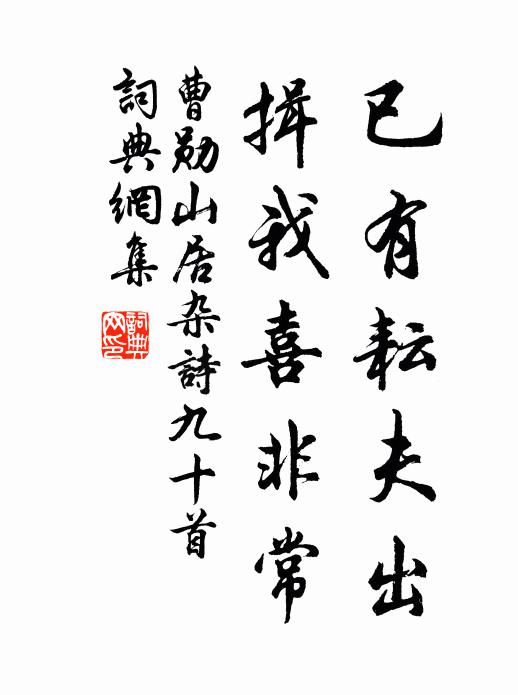 已有耘夫出
揖我喜非常
曹勛山居杂詩九十首
詞典網集
詞典网印